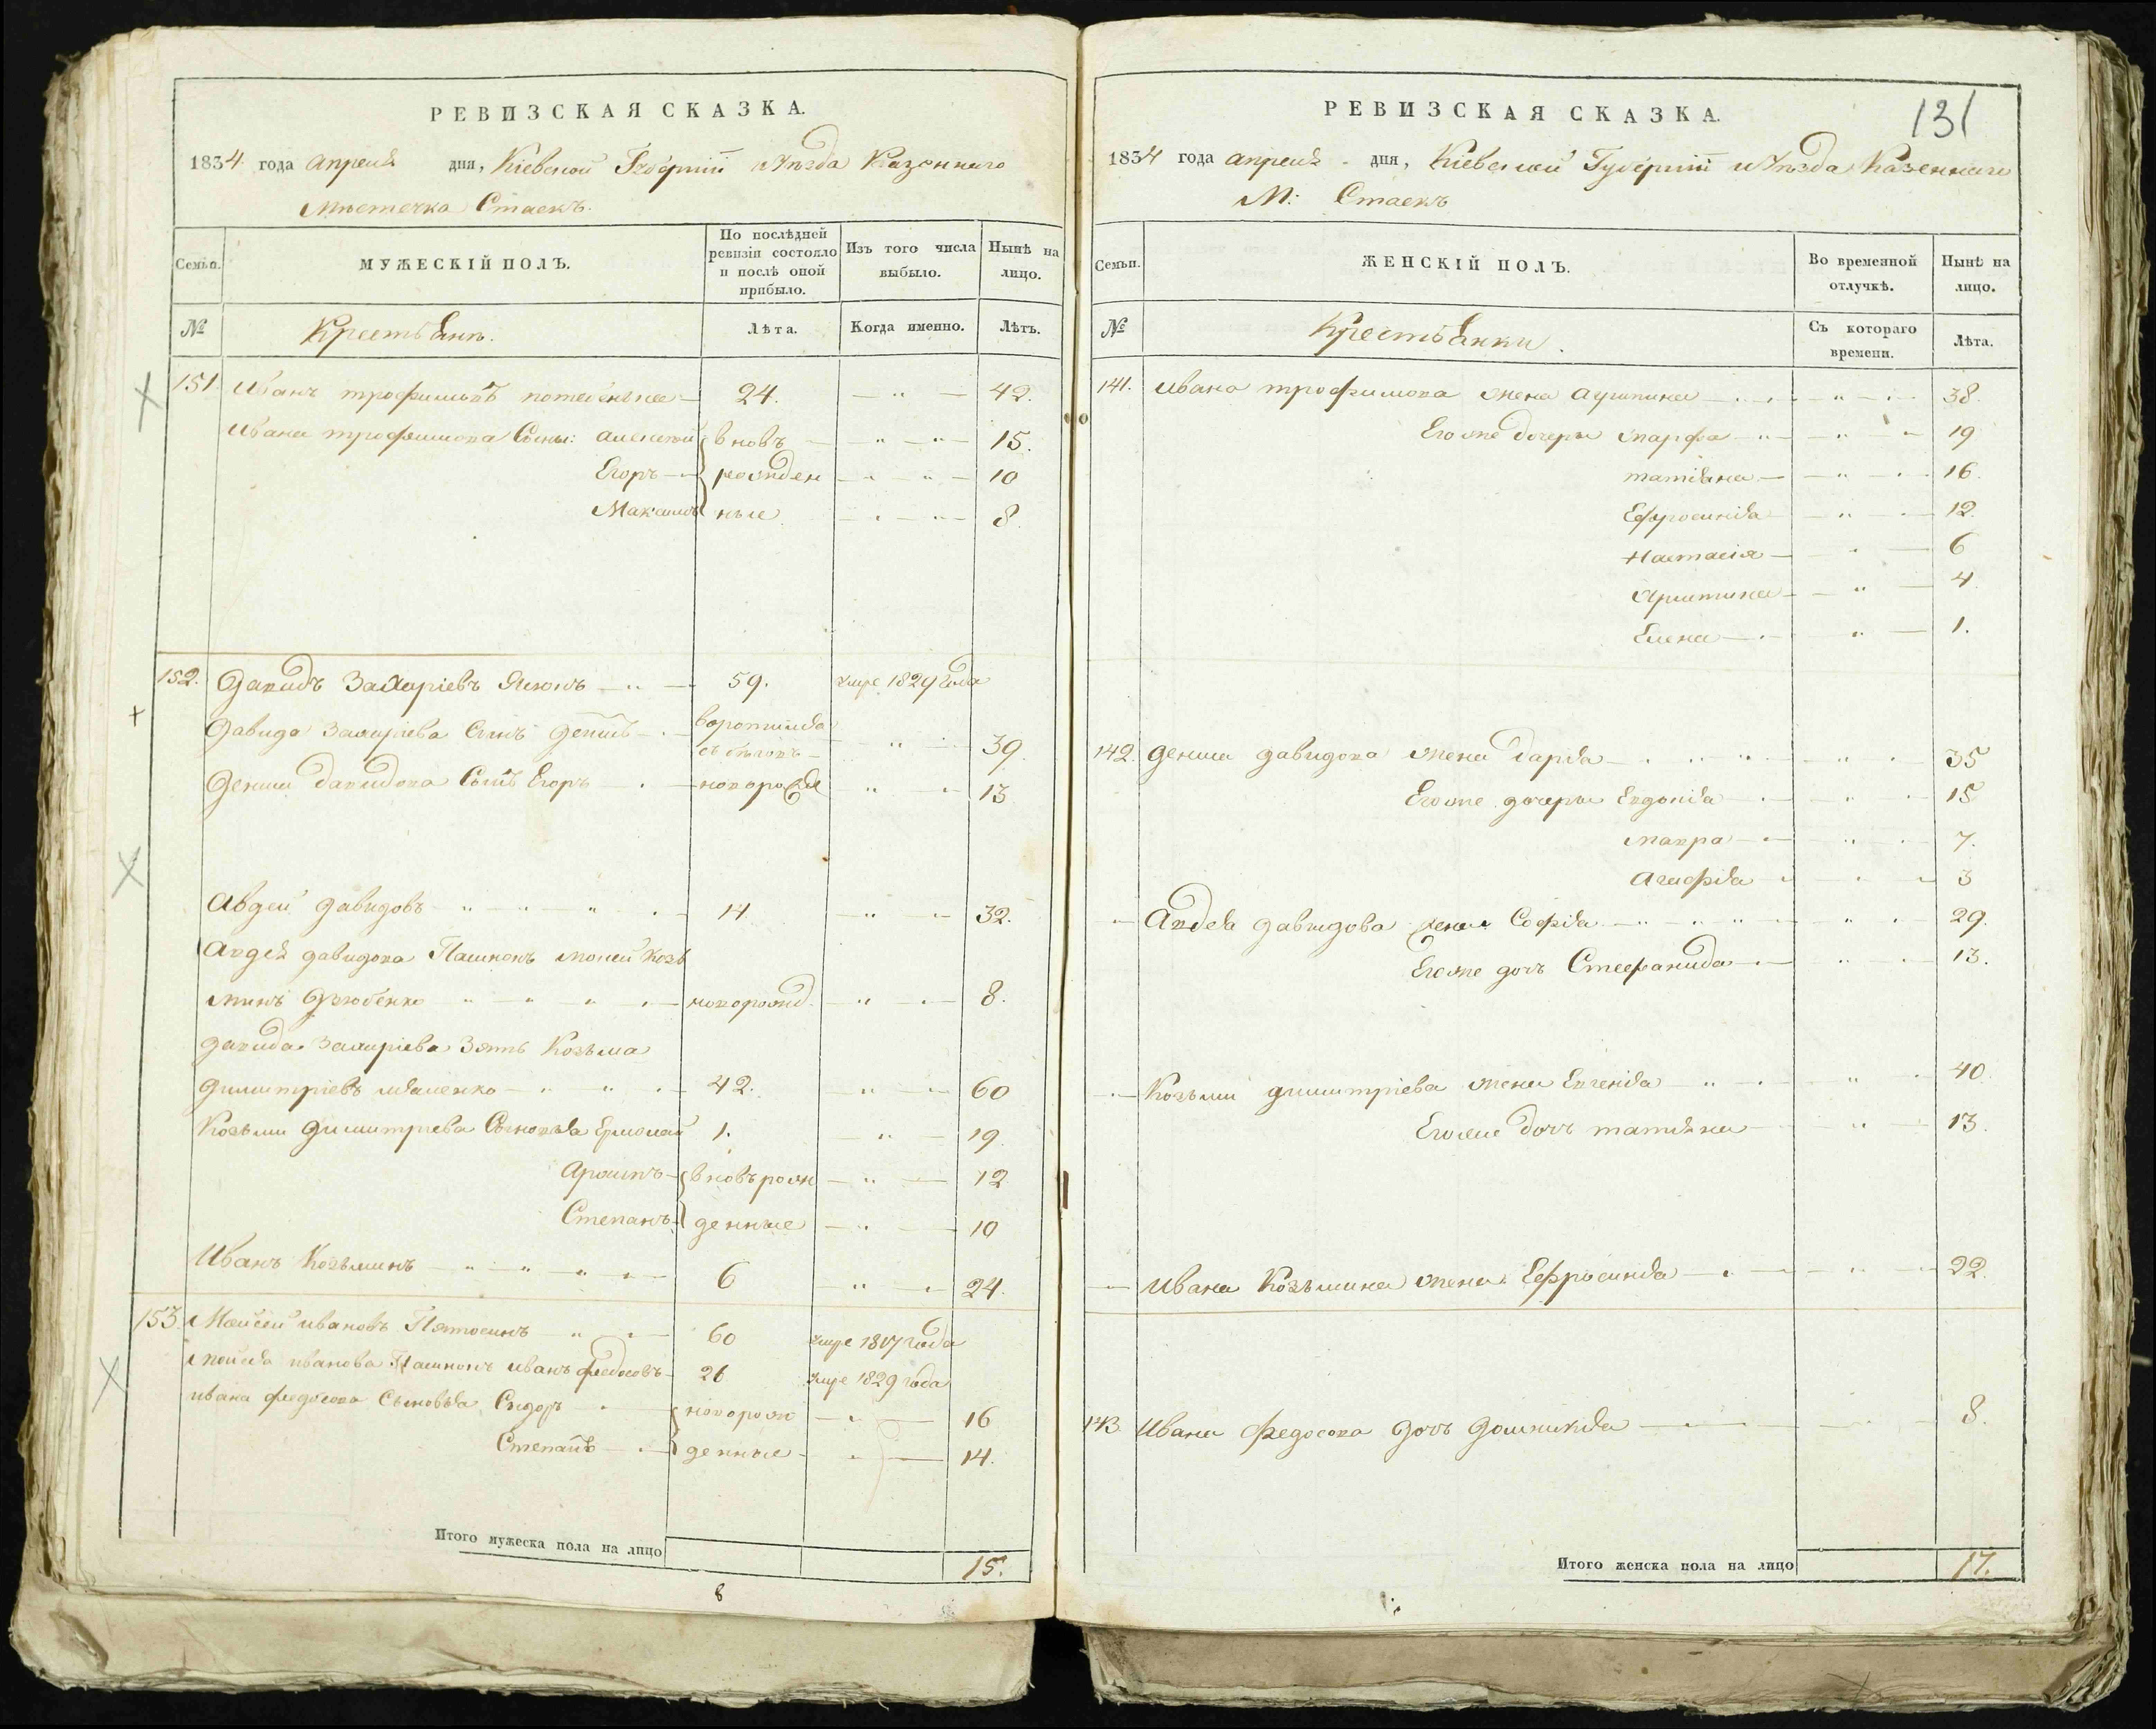 РЕВИЗСКАЯ СКАЗКА.
1834 года апреля дня, Кіевской Губерніи и Уѣзда Казеннаго
Мѣстечка Стаекъ.
Семьи.
МУЖЕСКІЙ ПОЛЪ.
По послѣдней ревизіи состояло и послѣ оной прибыло.
Изъ того числа выбыло.
Нынѣ на лицо.
№
Крестьяне.
Лѣта.
Когда именно.
Лѣтъ.
151. Иванъ трофимовъ 24. 42.
Ивана трофимова Сыны: алексей вновь 15.
Егоръ рожден 10
Максимъ ные 8.
152. Давидъ Захаріевъ 59. умре 1829 года
Давида Захаріева Сынъ Денисъ воротился съ бѣговъ 39.
Дениса давидова Сынъ Егоръ новорожде 13
Авдей Давидовъ 14 32.
Авдея давидова Моисей Козь
минъ новорожд. 8.
Давида Захаріева Зять Козьма
Димитріевъ 42. 60
Козьми Димитріева Сыновья Ермолай 1. 19.
вновь рож 12
Степанъ денные 10
Иванъ Козьминъ 6 24.
153. Моисей ивановъ 60 умре 1817 года
Моисея иванова иванъ федосовъ 26 умре 1829 года
ивана федосова Сыновья Сидоръ новорож 16
Степанъ денные 14.
Итого мужеска пола на лицо 15.
8
131
РЕВИЗСКАЯ СКАЗКА.
1834 года апреля дня, Кіевской Губерніи и Уѣзда Казеннаго
М: Стаекъ
Семьи.
ЖЕНСКІЙ ПОЛЪ.
Во временной отлучкѣ.
Нынѣ на лицо.
№
Крестьянки.
Съ котораго времени.
Лѣта.
141. Ивана трофимова жена 38.
Его же дочери марфа 19
татіана 16
Ефросинія 12.
Настасія 6
4.
Елена 1.
142. Дениса Давидова жена Дарья 35
Его же дочери Евдокія 15
мавра 7.
Агафія 3
Авдея Давидова жена Софія 29.
Его же дочь Стефанида 13.
Козьми Димитріева жена Евгенія 40.
Его же дочь татіяна 13.
Ивана Козьмина жена Ефросинія 22.
143. Ивана Федосова дочь Домникія 8.
Итого женска пола на лицо 17.